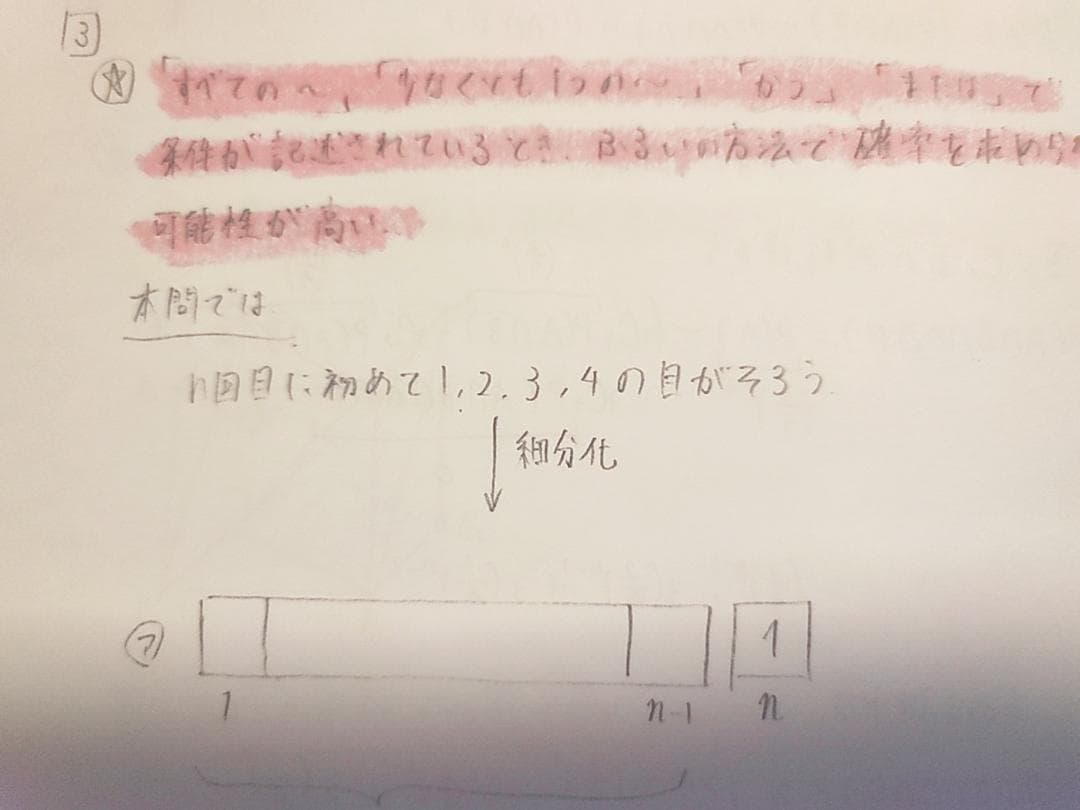 3
☆ 「すべての〜」「少なくとも1つの〜」「かつ」「または」で
条件が記述されているとき、ふるいの方法で確率を求めら
可能性が高い.
本問では
n回目に初めて1,2,3,4の目がそろう
↓ 細分化
㋐ 1
1 n-1 n